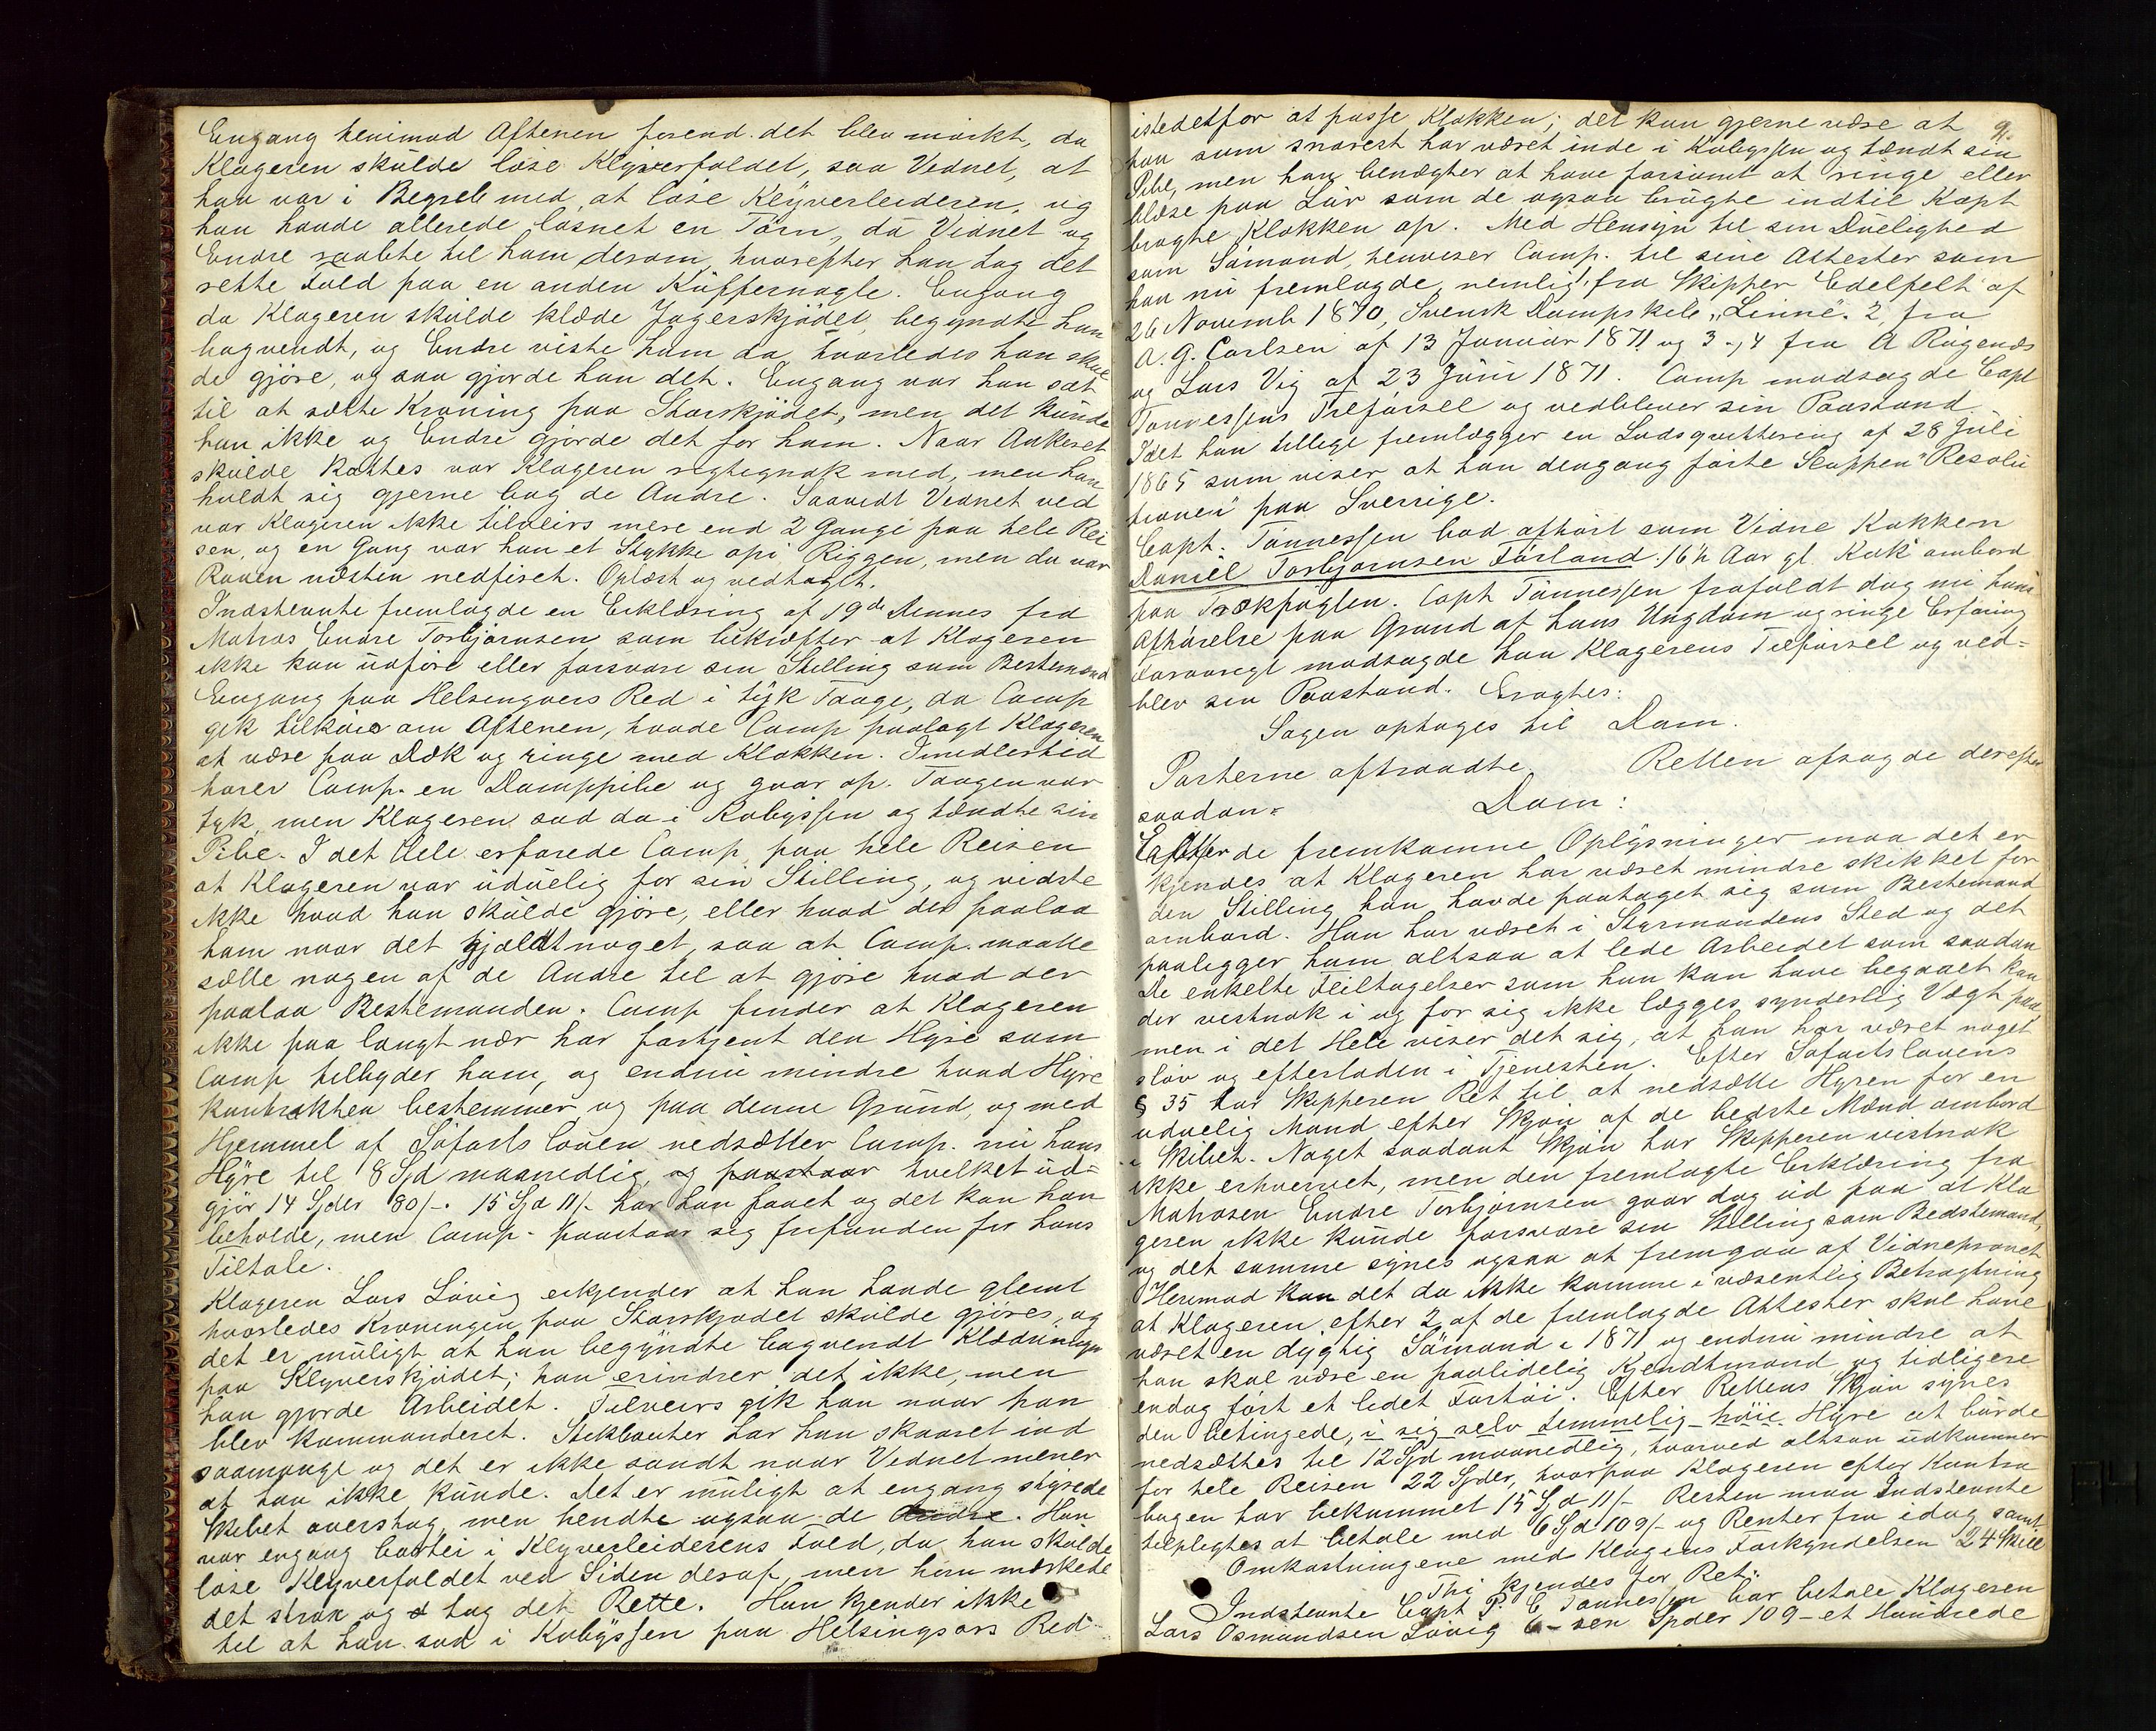 Engang henimod Aftenen forend det blev mörkt, da
Klageren skulde löse Klyverfaldet, saa Vidnet, at
han var i Begreb med, at löse Klyverleideren, og
han havde allerede lösnet en Törn, da Vidnet og
Endre raabte til ham derom, hvorefter han tog det
rette Fald paa en anden Köffernagle. Engang
da Klageren skulde klæde Jagerskjödet, begyndte han
bagvendt, og Endre viste ham da, hvorledes han skul
de gjöre, og saa gjorde han det. Engang var han sat
til at sætte Kroning paa Storskjödet, men det kunde
han ikke og Endre gjorde det for ham. Naar Ankeret
skulde kattes var Klageren rigtignok med, men han
holdt sig gjerne bag de Andre. Saavidt Vidnet ved
var Klageren ikke tilveirs mere end 2 Gange paa hele Rei
sen, og en Gang var han et Stykke opi Riggen, men da var
Raaen næsten nedfiret. Oplæst og vedtaget.
Indstevnte fremlagde en Erklæring af 19de dennes fra
Matros Endre Torbjörnsen som bekræfter at Klageren
ikke kan udföre eller forsvare sin Stilling som Bestemand
Engang paa Helsingoers Red i tyk Taage, da Comp
gik tilköis om Aftenen, havde Comp paalagt Klageren
at være paa Dæk og ringe med Klokken. Imidlertid
hörer Comp. en Damppibe og gaar op. Taagen var
tyk, men Klageren sad da i Kabyssen og tændte sin
Pibe. I det Hele erfarede Comp. paa hele Reisen
at Klageren var uduelig for sin Stilling, og vidste
ikke hvad han skulde gjöre, eller hvad der paalaa
ham naar det gjaldt noget, saa at Comp. maatte
sætte nogen af de Andre til at gjöre hvad der
paalaa Bestemanden. Comp finder at Klageren
ikke paa langt nær har fortjent den Hyre som
Comp tilbyder ham, og endnu mindre hvad Hyre
kontrakten bestemmer og paa denne Grund, og med
Hjemmel af Söfartsloven nedsætter Comp. nu hans
Hyre til 8 Spd maanedlig, og paastaar hvilket ud-
gjör 14 Spder 80/-. 15 Spd 11/- har han faaet og det kan han
beholde, men Comp. paastaar sig frifunden for hans
Tiltale.
Klageren Lars Lövig erkjender at han havde glemt
hvorledes Kroningen paa Storskjödet skulde gjöres, og
det er muligt at han begyndte bagvendt Klædningen
paa Klyverskjödet; han erindrer det ikke, men
han gjorde Arbeidet. Tilveirs gik han naar han
blev kommanderet. Stikbouter har han skaaret ind
saamange og det er ikke sandt naar Vidnet mener
at han ikke kunde. Det er muligt at engang styrede
Skibet overstag, men hendte ogsaa de Andre. Han
var engang bortei i Klyverleiderens Fald, da han skulde
löse Klyverfaldet ved Siden deraf, men han mærkede
det strax og tog det Rette. Han kjender ikke
til at han sad i Kabyssen paa Helsingörs Red
9.
istedetfor at passe Klokken; det kan gjerne være at
han som snarest har været inde i Kabyssen og tændt sin
Pibe, men han benægter at have forsömt at ringe eller
blæse paa Lur som de ogsaa brugte indtil Kapt
bragte Klokken op. Med Hensyn til sin Duelighed
som Sömand henviser Comp. til sine Attester som
han nu fremlagde, nemlig 1, fra Skipper Edelfelt af
26 Novemb 1870, Svensk Dampskib „Linné. 2, fra
A. G. Carlsen af 13 Januar 1871 og 3-, 4 fra A Rügends
og Lars Vig af 23 Juni 1871. Comp modsagde Capt
Tönnessens Tilförsel og vedblever sin Paastand
Idet han tillige fremlægger en Lodsqvittering af 28 Juli
1865 som viser at han dengang förte Sluppen "Resolu
tionen" paa Sverrige.
Capt. Tönnessen bad afhört som Vidne Kokken
Daniel Torbjörnsen Förland 16½ Aar gl. Kok ombord
paa Trækfuglen. Capt Tönnessen frafaldt dog nu hans
Afhörelse paa Grund af hans Ungdom og ringe Erfaring
Forövrigt modsagde han Klagerens Tilförsel og ved-
blev sin Paastand. Eragtes:
Sagen optages til Dom.
Parterne aftraadte. Retten afsagde derefter
saadan
Dom:
Efter de fremkomne Oplysninger maa det er
kjendes at Klageren har været mindre skikket for
den Stilling han havde paataget sig som Bestemand
ombord. Han har været i Styrmandens Sted og det
paaligger ham altsaa at lede Arbeidet som saadan
De enkelte Feiltagelser som han kan have begaaet kan
der vistnok i og for sig ikke lægges synderlig Vægt paa,
men i det Hele viser det sig, at han har været noget
slöv og efterladen i Tjenesten. Efter Söfartslovens
§ 35 har Skipperen Ret til at nedsætte Hyren for en
uduelig Mand efter Skjön af de bedste Mænd ombord
i Skibet. Noget saadant Skjön har Skipperen vistnok
ikke erhvervet, men den fremlagte Erklæring fra
Matrosen Endre Torbjörnsen gaar dog ud paa at Kla
geren ikke kunde forsvare sin Stilling som Bedstemand,
og det samme synes ogsaa at fremgaa af Vidneprovet
Herimod kan det da ikke komme i væsentlig Betragtning
at Klageren efter 2 af de fremlagde Attester skal have
været en dygtig Sömand i 1871 og endnu mindre at
han skal være en paalidelig Kjendtmand og tidligere
endog fört et lidet Fartöi. Efter Rettens Skjön synes
den betingede, i sig selv temmelig höie Hyre at burde
nedsættes til 12 Spd maanedlig, hvorved altsaa udkommer
for hele Reisen 22 Spder, hvorpaa Klageren efter Kontra
bogen har bekommet 15 Spd 11/- Resten maa Indstevnte
tilpligtes at betale med 6 Spd 109/- og Renter fra idag samt
Omkostningene med Klagens Forkyndelsen 24 Skill
Thi kjendes for Ret:
Indstevnte Capt P. C Tönnessen bör betale Klageren
Lars Osmundsen Lövig 6 - sex Spder 109 - et Hundrede